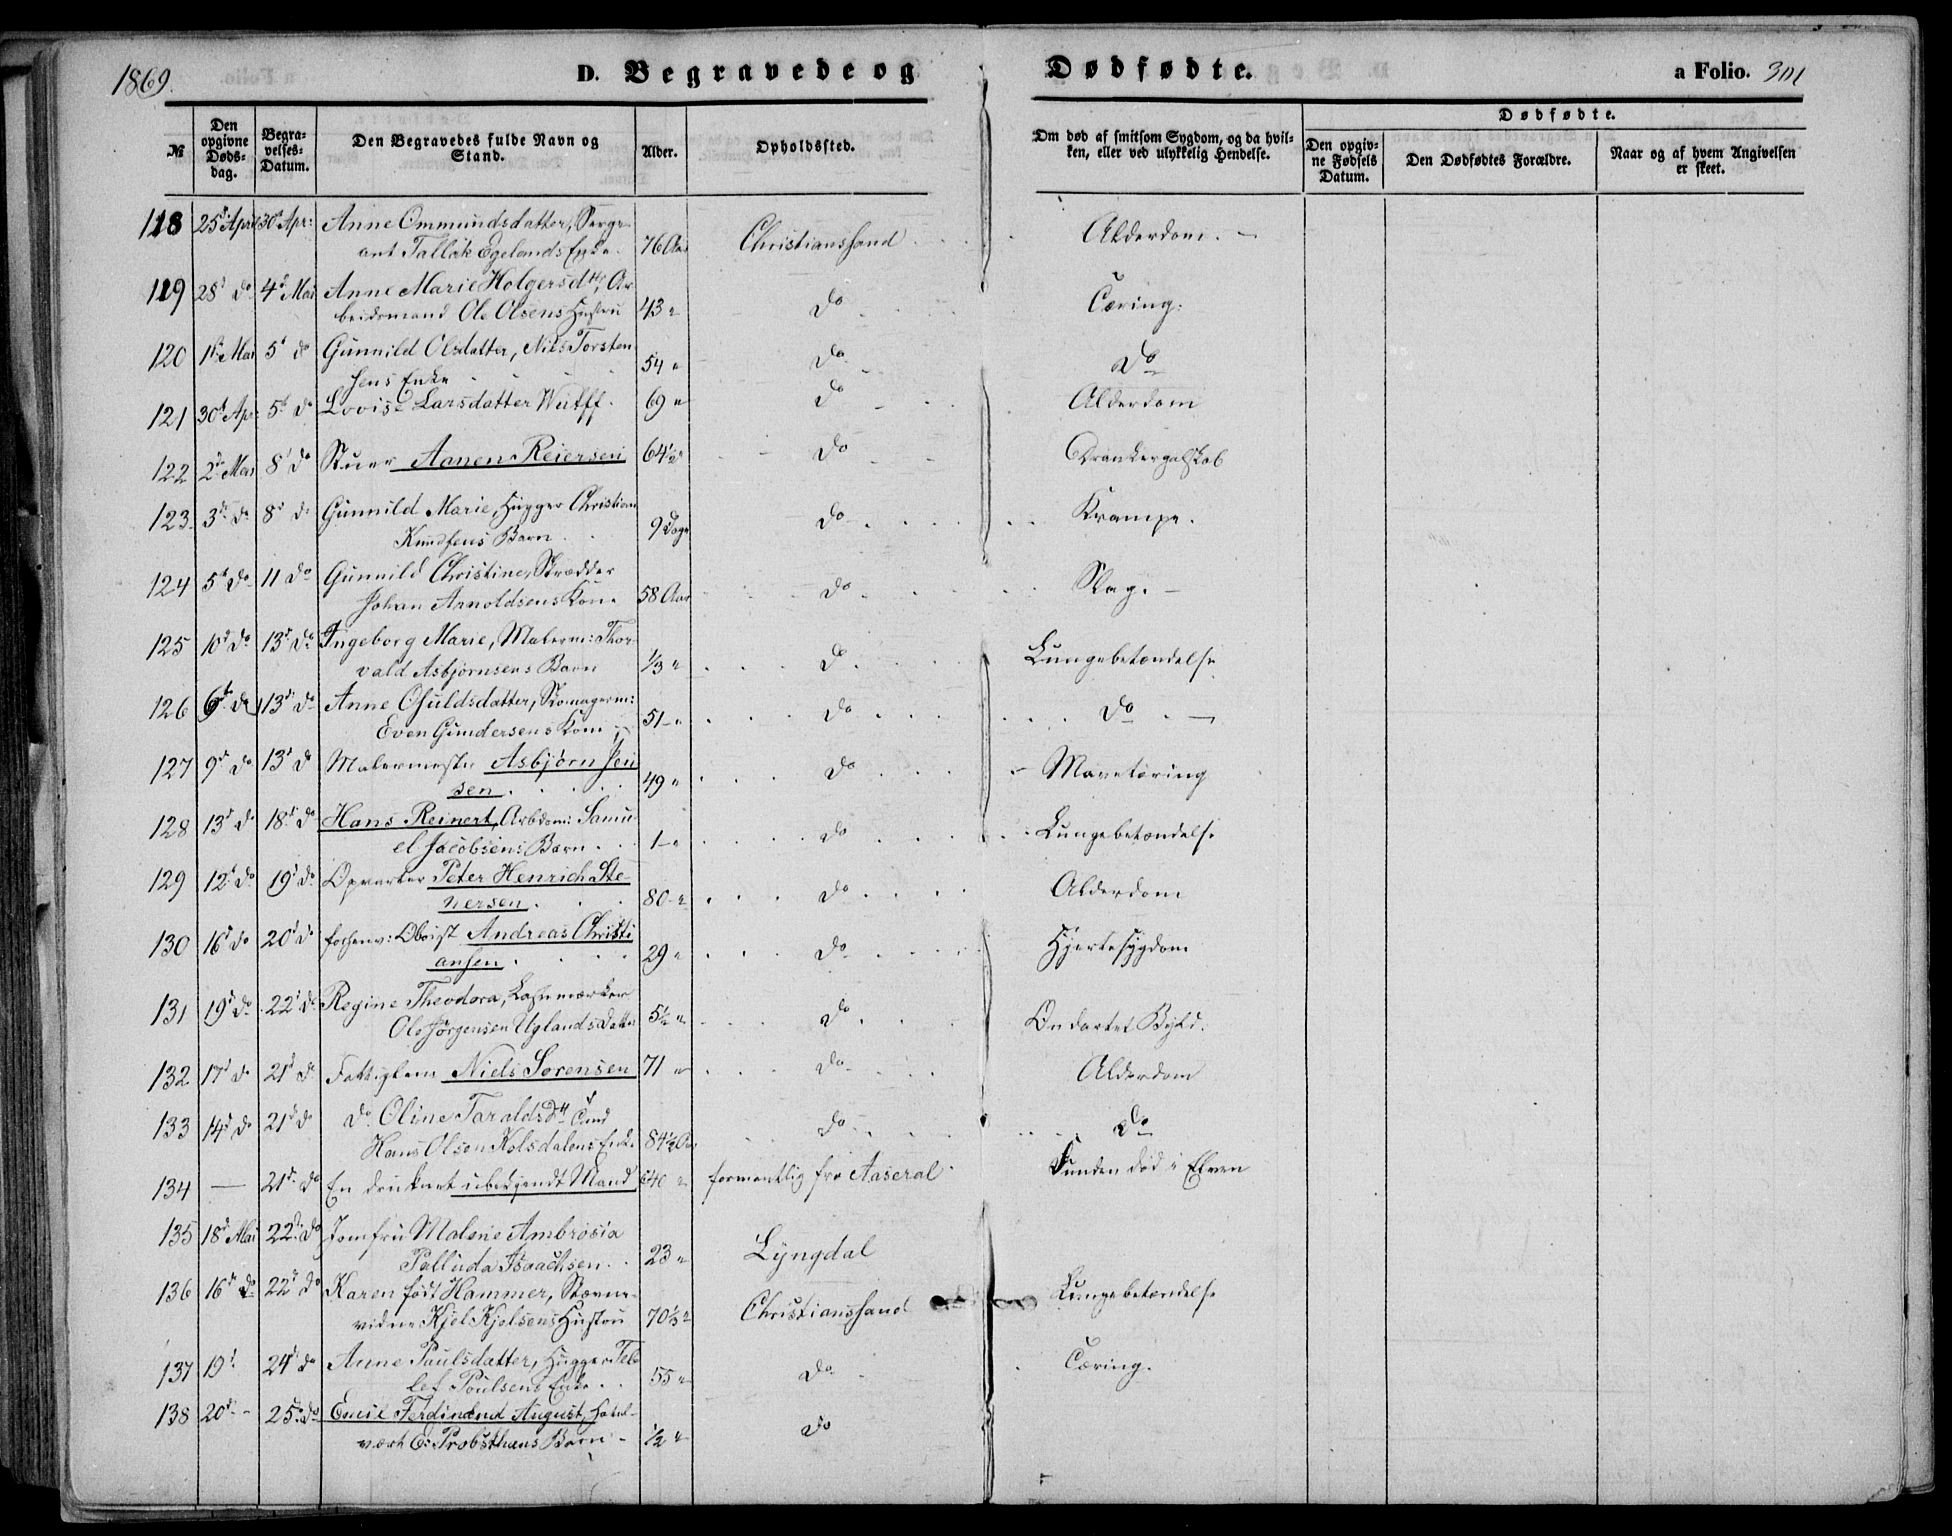 1869.
D. Begravede og Dødfødte. a Folio. 301
№
Den opgivne Døds-dag.
Begra-velses-Datum.
Den Begravedes fulde Navn og Stand.
Alder.
Opholdssted.
Om død af smitsom Sygdom, og da hvil-ken, eller ved ulykkelig Hendelse.
Dødfødte.
Den opgiv-ne Fødsels Datum.
Den Dødfødtes Forældre.
Naar og af hvem Angivelsen er skeet.
118 25d April 30d Apr: Anne Ommundsdatter, Serge-
ant Tallak Egelands Enke. 76 Aar Christianssand Alderdom. –
119 28d do 4d Mai Anne Marie Holgersdtr, Ar-
beidsmand Ole Olsens Hustru 43 " do Tæring.
120 1ste Mai 5t do Gunnild Olsdatter, Niels Torsten
sens Enke 54 " do do
121 30d Ap. 5t do Lovise Larsdatter Wulff. 69 " do Alderdom
122 2den Mai 8d do Stuer Aanen Reiersen 64½ " do Drankergalskab
123 3die do 8d do Gunnild Marie, Hugger Christian
Knudsens Barn 9 Dage do Krampe.
124 5t do 11 do Gunnild Christine, Skrædder
Johan Arnoldsens Kone 58 Aar do Slag. –
125 10d do 13d do Ingeborg Marie, Malerm: Thor-
vald Asbjørnsens Barn 1/3 " do Lungebetændelse
126 6t do 13d do Anne Osuldsdatter, Skomagerm:
Even Gundersens Kone 51 " do do –
127 9d do 13d do Malermester Asbjørn Jen
sen 49 " do Mavetæring
128 13d do 18d do Hans Reinert, Arbdsm: Samu-
el Jacobsens Barn 1 " do Lungebetændelse
129 12t do 19d do Opvarter Peter Henrich Ste-
nersen 80 " do Alderdom
130 16d do 20d do forhenv: Oboist Andreas Christi
ansen 29 " do Hjertesygdom
131 19d do 22d do Regine Theodora,
Ole Jørgensen Uglands Datter 5½ " do Ondartet Byld.
132 17d do 21d do Fattiglem Niels Sørensen 71 " do Alderdom
133 14d do 21d do do Oline Taraldsdtr
Hans Olsen Kolsdalens Enke 84½ Aar do do
134 — 21d do En druknet ubekjendt Mand 40 " formentlig fra Aaseral Funden død i Elven
135 18d Mai 22d do Jomfru Malene Ambrosia
Palluda Isaachsen 23 " Lyngdal
136 16d do 22d do Karen født Hammer, Stævne-
vidne Kjel Kjelsens Hustru 70⅓ " Christianssand Lungebetændelse
137 19d 24d do Anne Paulsdatter, Hugger Tel-
lef Poulsens Enke 55 " do Tæring.
138 20d – 25d do Emil Ferdinand August, Hotel-
vært E. Probsthans Barn – ½ " do